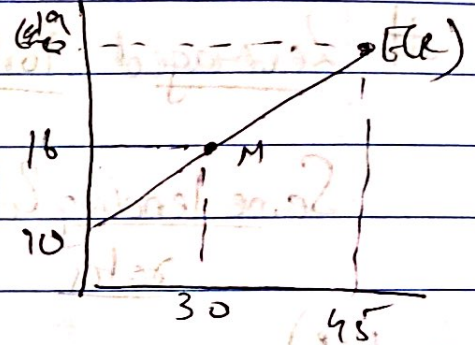 E(R)
16
M
10
30
45